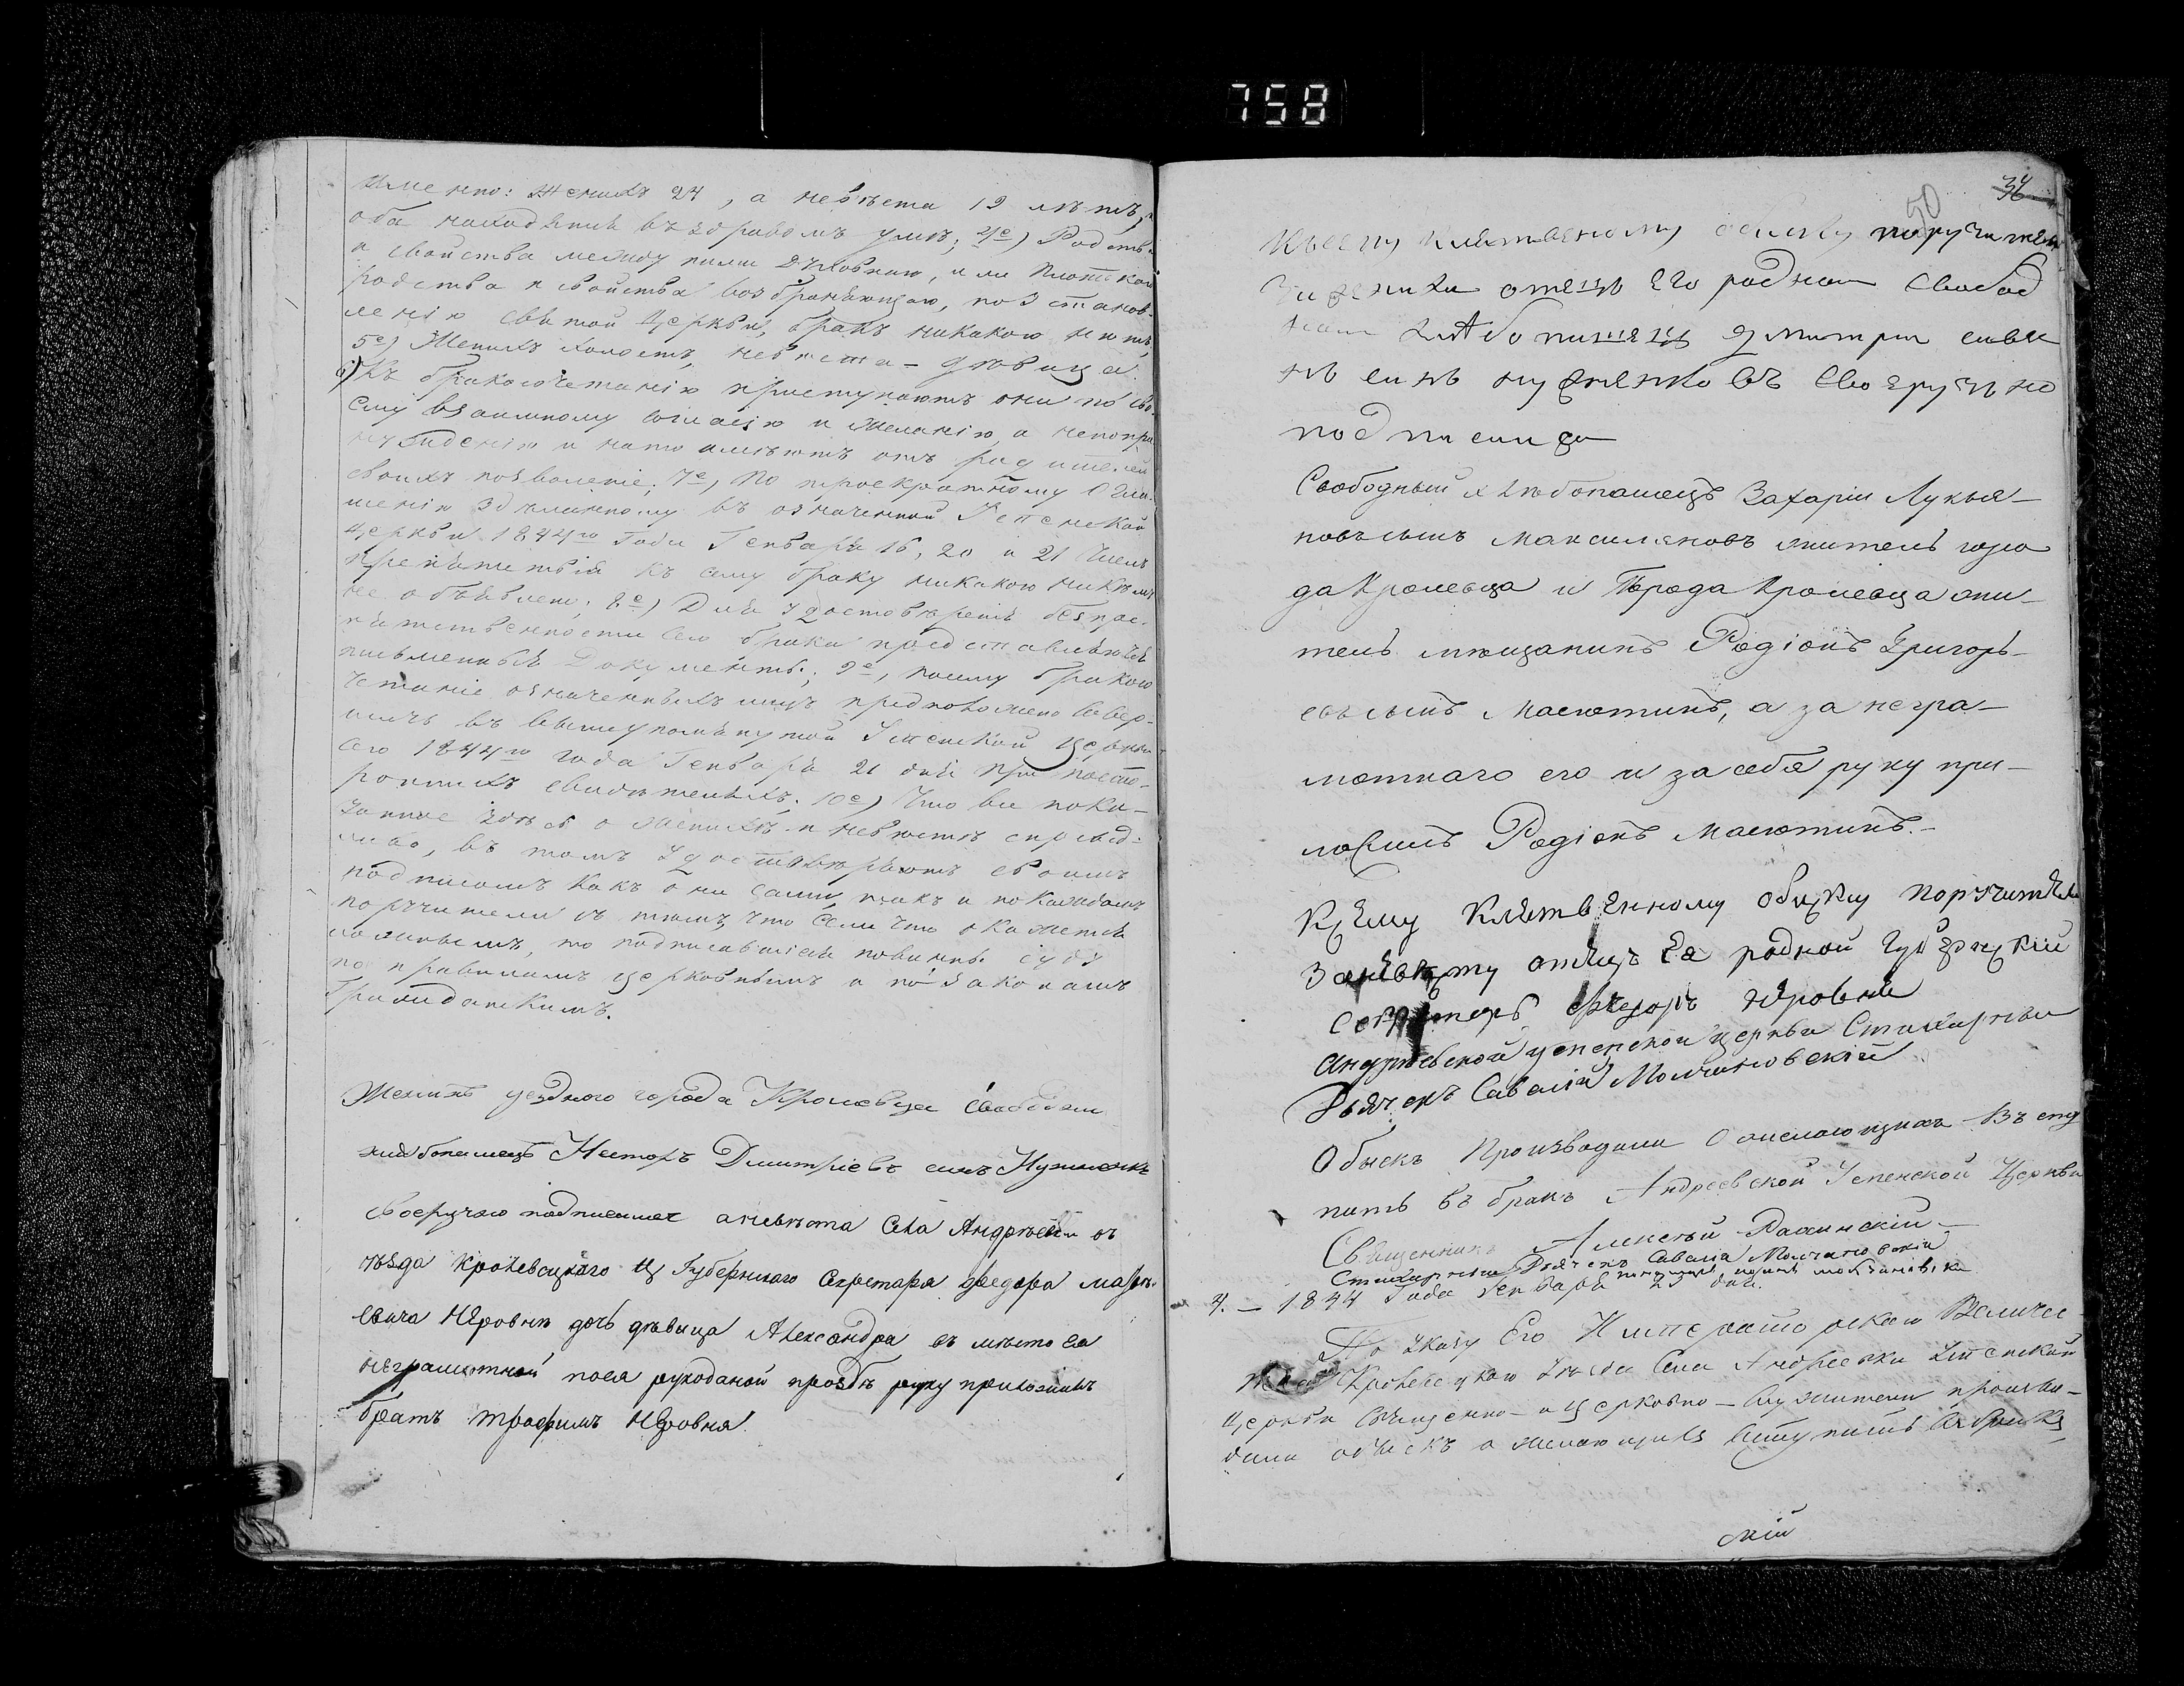 758
именно: женихъ 24, а невѣста 19 лѣтъ, и
оба находятся въ здравомъ умѣ; 4е) Родств-
а свойства между ними духовнаго, или плотскаго
родства и свойства возбраняющаго, по установ-
ленію святой Церкви, бракъ никакого нѣтъ,
5е) Женихъ холостъ, невѣста - дѣвица
6) Къ бракосочетанію приступаютъ они по сво-
ему взаимному согласію и желанію, а непопри-
нужденію и нато имѣютъ отъ родителей
своихъ позволеніе; 7е, По троекратному Огла-
шенію здѣланному въ означенной Успенской
Церкви 1844го Года Генваря 16, 20 и 21 Числъ
препятствія къ сему браку никакого никѣмъ
не объявлено; 8е) Для удостовѣренія безпре-
пятственности сего брака представляются
письменные Документы; 9е, посему бракосо
четаніе означенныхъ лицъ предположено Совер-
шить въ вышеупомянутой Успенской Церкви
сего 1844го года Генваря 21 дня при посто-
роннихъ свидѣтеляхъ; 10е) Что все пока-
занное здѣсь о Женихѣ и невѣстѣ справед-
ливо, въ томъ удостовѣряютъ своимъ
подписомъ какъ они сами, такъ и по каждомъ
поручители съ тѣмъ, что если что окажется
ложнымъ, то подписавшіеся повинны суду
по правиламъ церковнымъ и по законамъ
Гражданскимъ.
Женихъ уезднаго города Кролевца Свободни
хлебопашецъ Несторъ Дмитріевъ сынъ
своеручно подписался аневѣста Села Андрѣевки
уѣзда Кролевецкаго Губернскаго Секретаря Федора
Неровни дочь дѣвица Александра въ мѣсто Ея
неграмотной поея рукоданой прозбѣ руку приложилъ
братъ Трофимъ Неровня
34
50
Ксему клятвеному обыску поручитель
Зажениха отецъ Его родной Свобод
ной хлебопашецъ Дмитри
сынъ своеручно
подписался
Свободный хлѣбопашецъ Захарій Лукья-
новъ сынъ Максимановъ житель горо
да Кролевца и Города Кролевца жи-
тель мѣщанинъ Родіонъ Григорь-
евъ сынъ Масютинъ, а за негра-
мотнаго его и за себя руку при-
ложилъ Родіонъ Масютинъ.-
Ксему Клятвенному обыску поручитель
Заневѣсту отецъ Ея родной Губернскій
Секретарь Федоръ Неровня
Андрѣевской успенской церкви Стихарный
Дьячекъ Савелій Молчановскій
Обыскъ Производили О желающихъ Всту
пить въ бракъ Андреевской Успенской Церкви
Священникъ Алексѣй
Стихарный Дьячекъ Савелій Молчановскій
4. - 1844 Года Генваря 23 дня.
По указу Его Императорскаго Величес
тва Кролевецкаго уѣзда Села Андреевки Успенской
Церкви Священно- и церковно-служители произво-
дили обыскъ о желающихъ вступить въ бракъ,